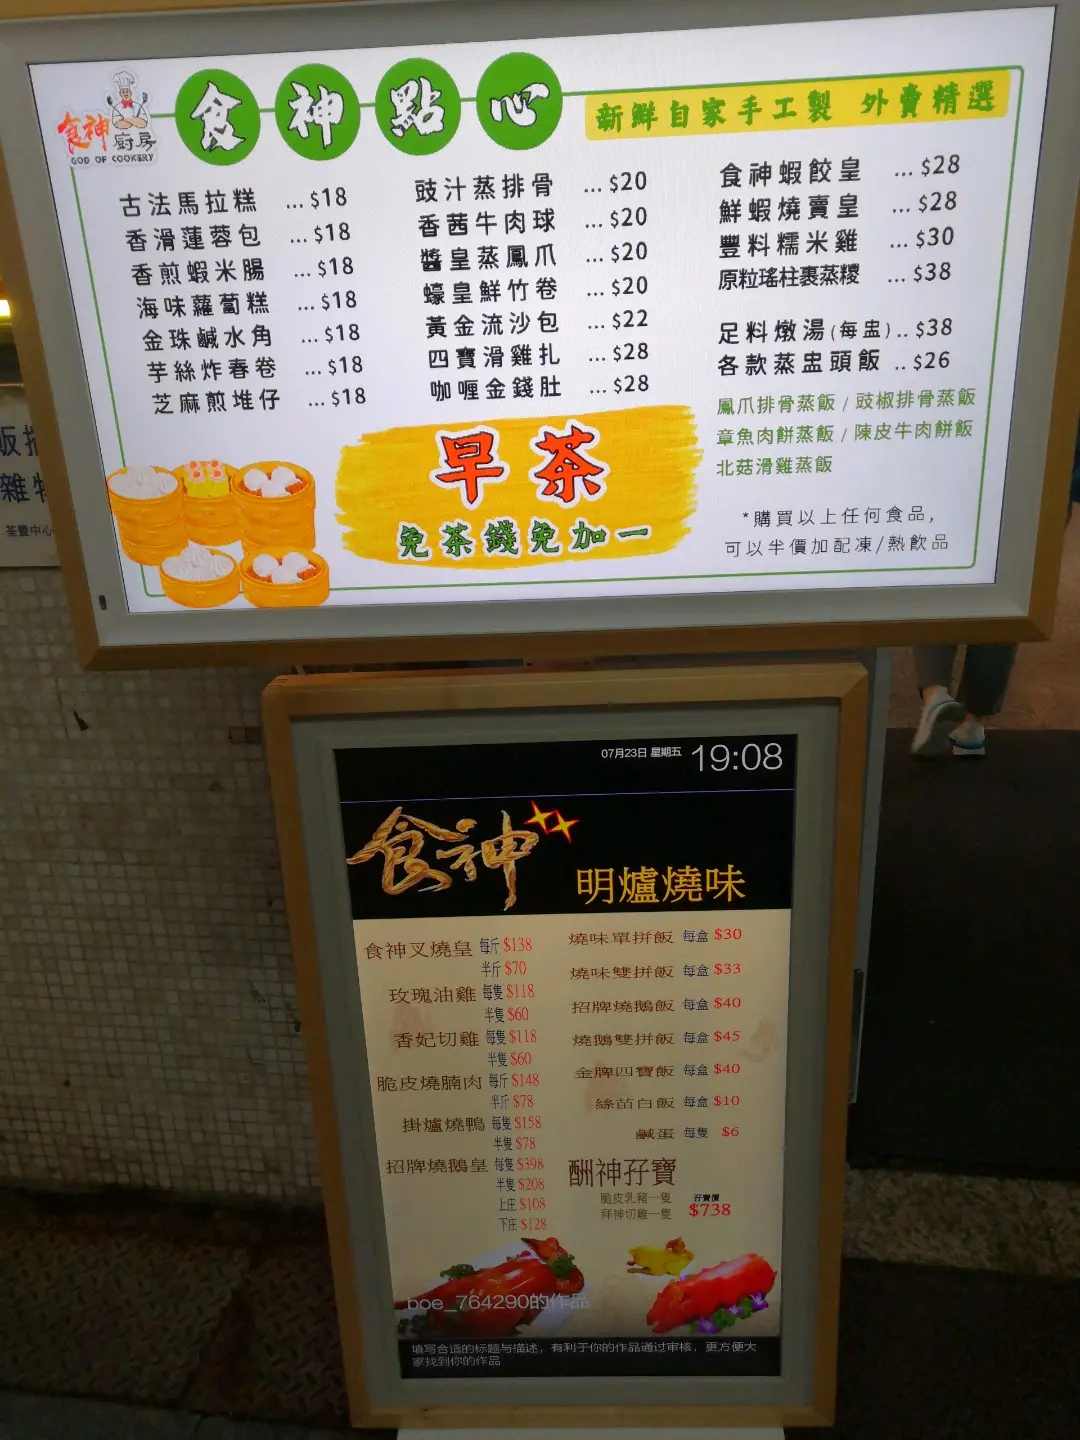 食神廚房
GOD OF COOKERY
食神點心
新鮮自家手工製 外賣精選
古法馬拉糕 ...$18
香滑蓮蓉包 ...$18
香煎蝦米腸 ...$18
海味蘿蔔糕 ...$18
金珠鹹水角 ...$18
芋絲炸春卷 ...$18
芝麻煎堆仔 ...$18
豉汁蒸排骨 ...$20
香茜牛肉球 ...$20
醬皇蒸鳳爪 ...$20
蠔皇鮮竹卷 ...$20
黃金流沙包 ...$22
四寶滑雞扎 ...$28
咖喱金錢肚 ...$28
食神蝦餃皇 ...$28
鮮蝦燒賣皇 ...$28
豐料糯米雞 ...$30
原粒瑤柱裹蒸糉 ...$38
足料燉湯(每盅)..$38
各款蒸盅頭飯 ..$26
鳳爪排骨蒸飯/豉椒排骨蒸飯
章魚肉餅蒸飯/陳皮牛肉餅飯
北菇滑雞蒸飯
*購買以上任何食品,
可以半價加配凍/熱飲品
早茶
免茶錢免加一
荃豐中心
07月23日 星期五 19:08
食神
明爐燒味
食神叉燒皇 每斤 $138
半斤 $70
玫瑰油雞 每隻 $118
半隻 $60
香妃切雞 每隻 $118
半隻 $60
脆皮燒腩肉 每斤 $148
半斤 $78
掛爐燒鴨 每隻 $158
半隻 $78
招牌燒鵝皇 每隻 $398
半隻 $208
上庄 $108
下庄 $128
燒味單拼飯 每盒 $30
燒味雙拼飯 每盒 $33
招牌燒鵝飯 每盒 $40
燒鵝雙拼飯 每盒 $45
金牌四寶飯 每盒 $40
絲苗白飯 每盒 $10
鹹蛋 每隻 $6
酬神孖寶
脆皮乳豬一隻 孖寶價
拜神切雞一隻 $738
boe_764290的作品
填写合适的标题与描述，有利于你的作品通过审核，更方便大
家找到你的作品